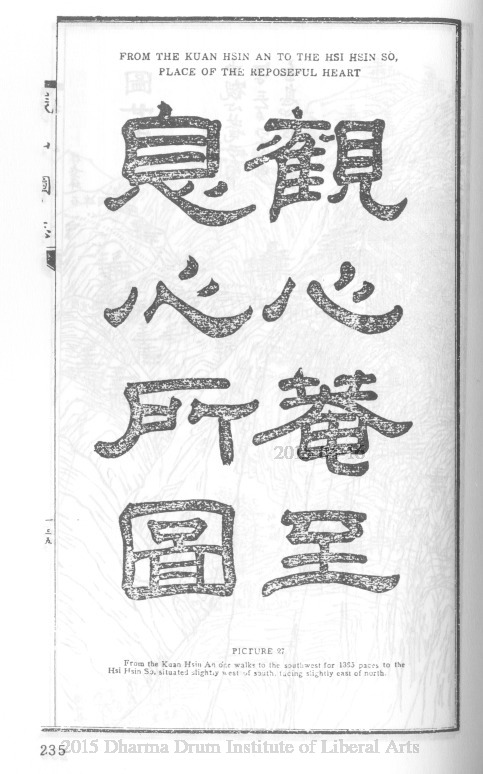 FROM THE KUAN HSIN AN TO THE HSI HSIN SO,
PLACE OF THE REPOSEFUL HEART
觀心菴至
息心所圖
PICTURE 27
From the Kuan Hsin An one walks to the southwest for paces to the
Hsi Hsin So, situated slightly west of south, facing slightly east of north.
235
2015 Dharma Drum Institute of Liberal Arts